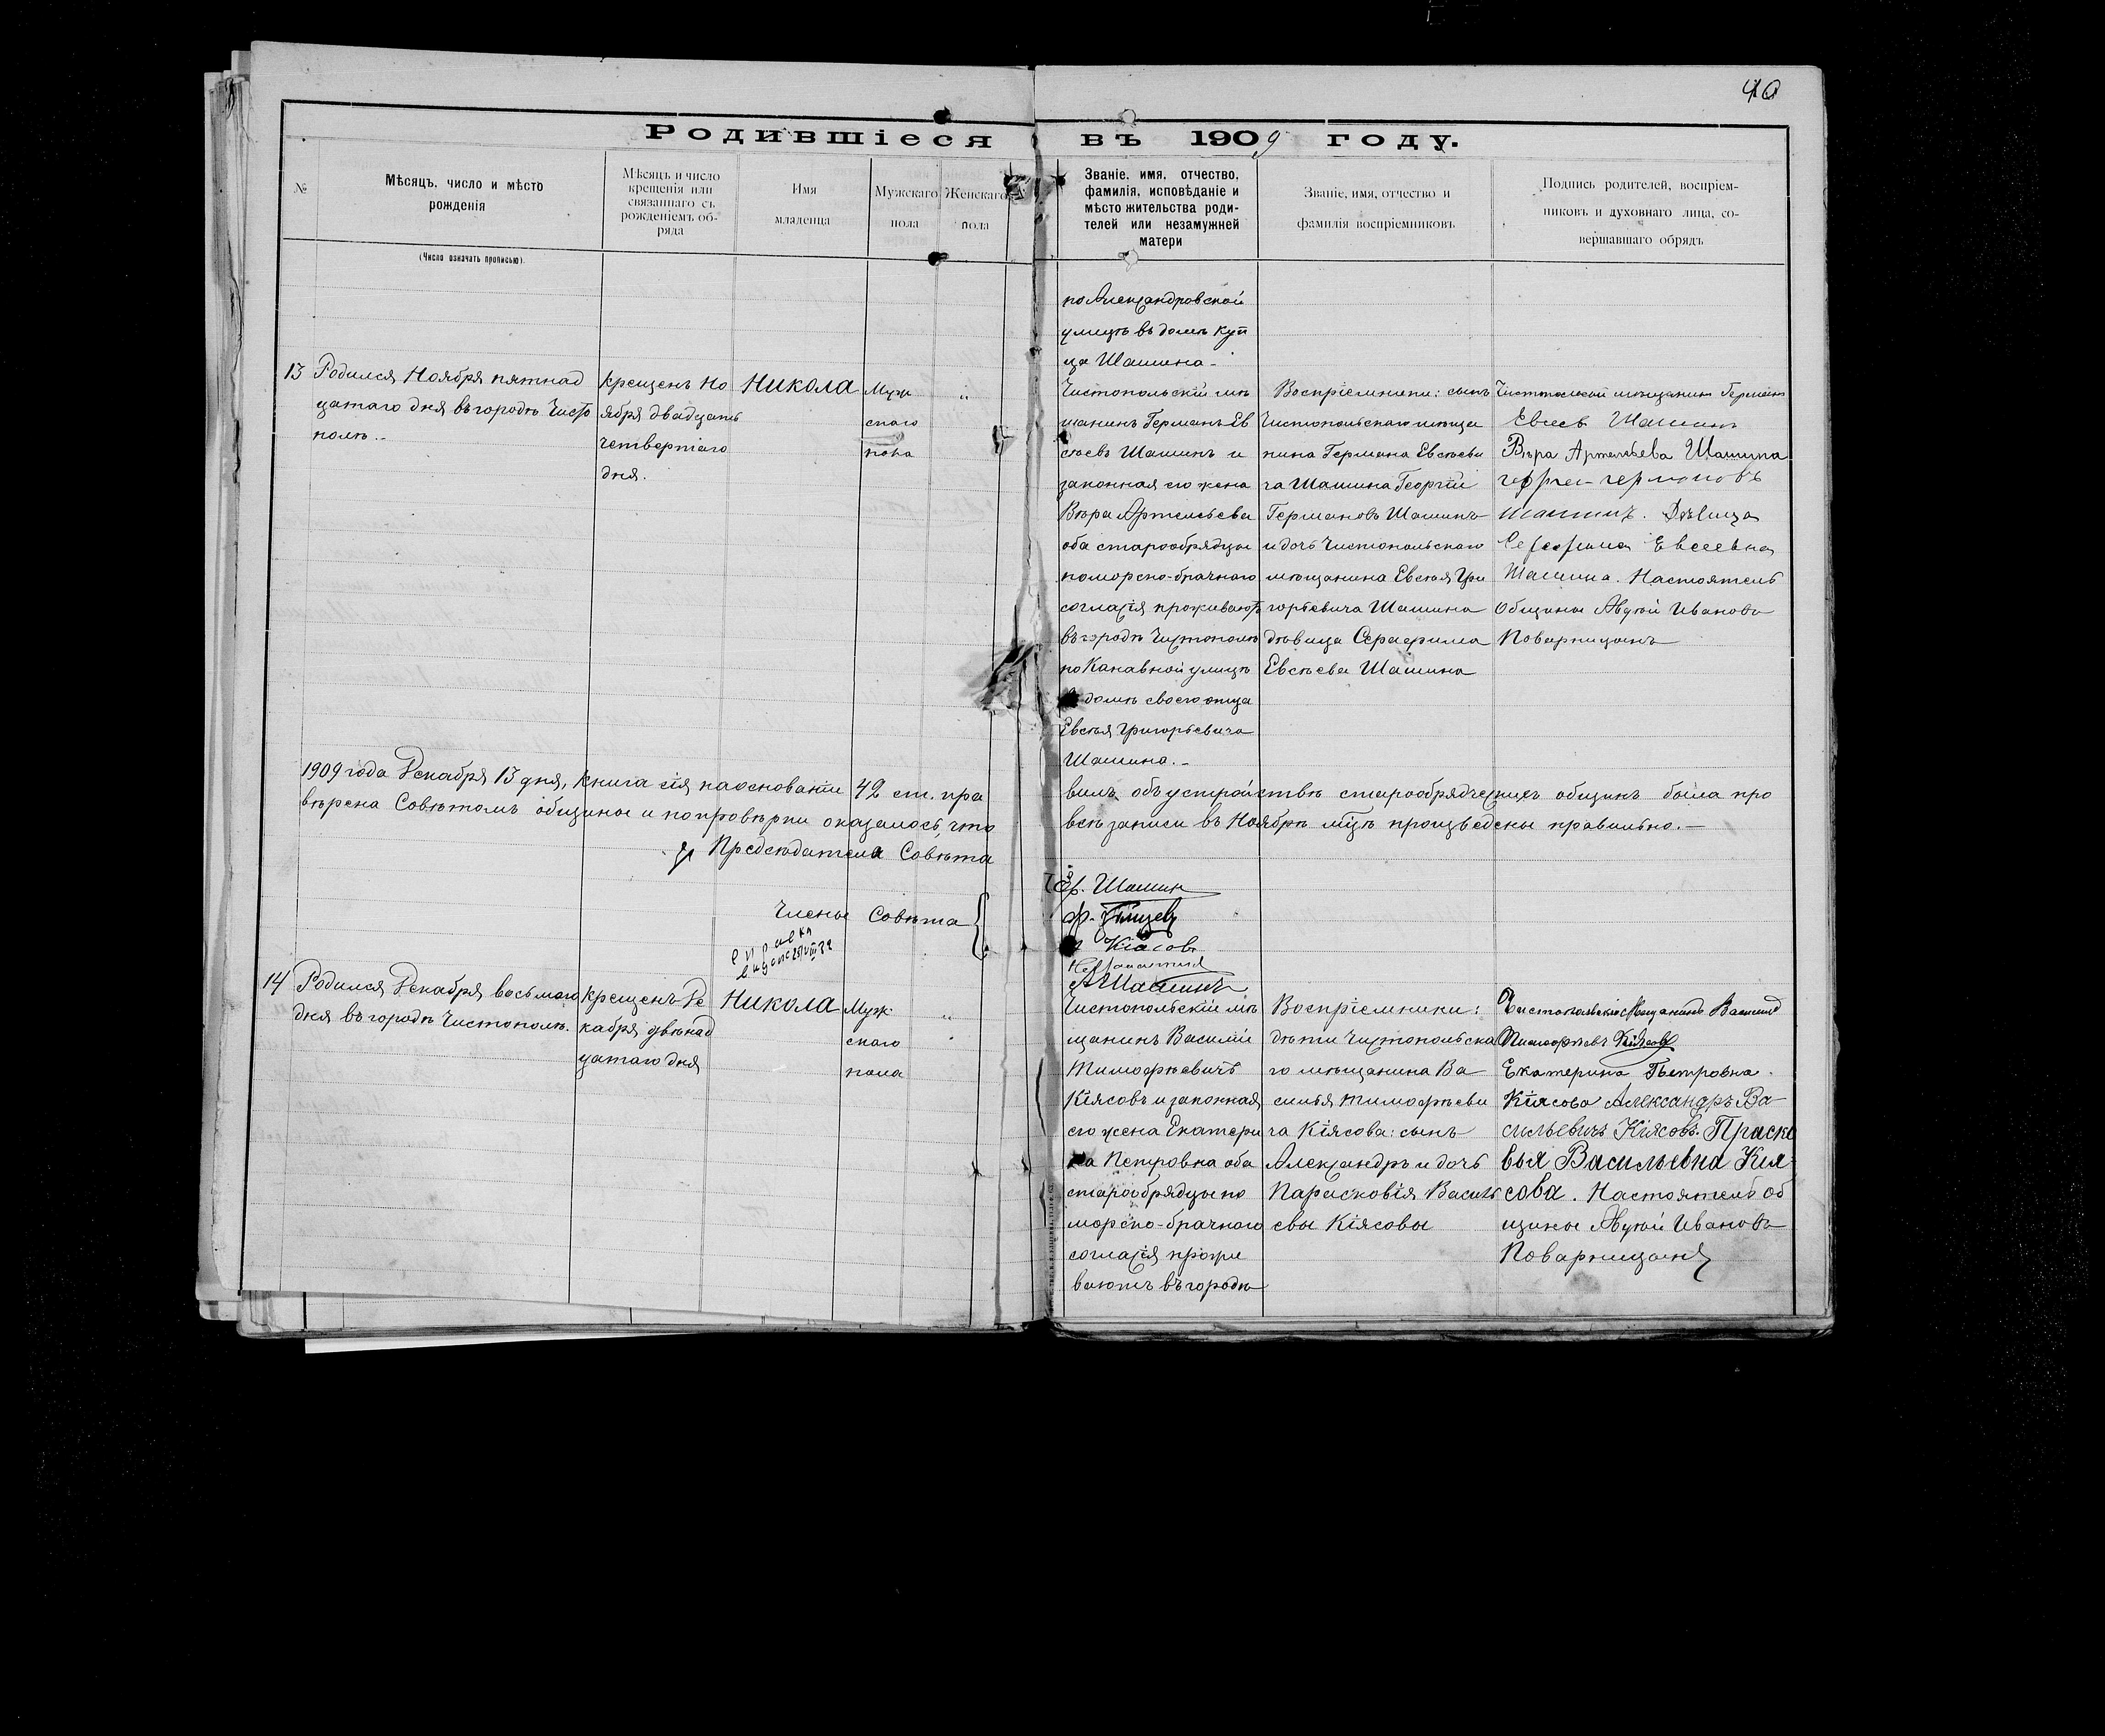 40
Родившіеся въ 1909 году.
№
Мѣсяцъ, число и мѣсто
рожденія
(Число означать прописью).
Мѣсяцъ и число
крещенія или
связаннаго съ
рожденіемъ об-
ряда
Имя
младенца
Мужскаго
пола
Женскаго
пола
Званіе, имя, отчество,
фамилія, исповѣданіе и
мѣсто жительства роди-
телей или незамужней
матери
Званіе, имя, отчество и
фамилія воспріемниковъ
Подпись родителей, воспріем-
никовъ и духовнаго лица, со-
вершавшаго обрядъ
по Александровской
улицѣ въ домѣ куп
ца Шашина
13
Родился Ноября пятнад
цатаго дня въ городѣ Чисто
полѣ.
Крещенъ Но
ября двадцать
четвертаго
дня.
Никола
Муж
скаго
пола
"
Чистопольскій мѣ
щанинъ Германъ Ев
сѣевъ Шашинъ и
законная его жена
Вѣра Артемьева
оба старообрядцы
поморско-брачнаго
согласія проживаютъ
въ городѣ Чистополѣ
по Канавной улицѣ
въ домѣ своего отца
Евсѣя Григорьевича
Шашина.
Воспріемники: сынъ
Чистопольскаго мѣща
нина Германа Евсѣеви
ча Шашина Георгій
Германовъ Шашинъ
и дочь Чистопольскаго
мѣщанина Евсѣя Гри
горьевича Шашина
дѣвица Серафима
Евсѣева Шашина
Чистопольскій мѣщанинъ Германъ
Евсеев Шашинъ
Вѣра Артемьева Шашина
Шашинъ. Дѣвица
Серафима Евсеевна
Шашина. Настоятель
общины Авдѣй Ивановъ
Поварницынъ
1909 года Декабря 13 дня, книга сія на основаніи 42 ст. пра
вилъ объ устройствѣ старообрядческихъ общинъ была про
вѣрена Совѣтомъ общины и по провѣрки оказалось, что
всѣ записи въ Ноябрѣ м̃цѣ произведены правильно.
За Предсѣдателя Совѣта
Шашин
Члены Совѣта
Кіасов
АШашинъ
справка
выдана
14
Родился Декабря восьмаго
дня въ городѣ Чистополѣ.
Крещенъ Де
кабря двѣнад
цатаго дня
Никола
Муж
скаго
пола
"
Чистопольскій мѣ
щанинъ Василій
Тимофѣевичъ
Кіясовъ и законная
его жена Екатери
на Петровна оба
старообрядцы по
морско-брачнаго
согласія прожи
ваютъ въ городѣ
Воспріемники:
дѣти Чистопольска
го мѣщанина Ва
силья Тимофѣеви
ча Кіясова: сынъ
Александръ и дочь
Парасковія Василь
евы Кіясовы
Чистопольскій Мѣщанинъ Василий
Тимофѣевъ Кіясовъ
Екатерина Петровна
Кіясова Александръ Ва
сильевичъ Кіясовъ. Праско
вья Васильевна Кия
сова. Настоятель об
щины Авдѣй Ивановъ
Поварницынъ